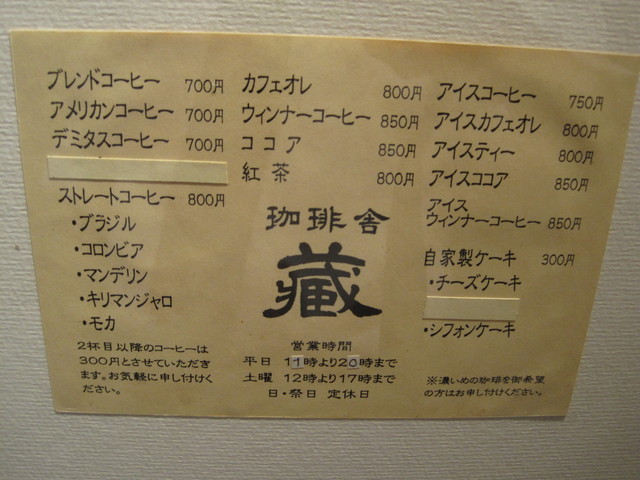 ブレンドコーヒー 700円
アメリカンコーヒー 700円
デミタスコーヒー 700円
ストレートコーヒー 800円
・ブラジル
・コロンビア
・マンデリン
・キリマンジャロ
・モカ
2杯目以降のコーヒーは
300円とさせていただき
ます。お気軽に申し付けく
ださい。
カフェオレ 800円
ウィンナーコーヒー 850円
ココア 850円
紅茶 800円
珈琲舎
蔵
営業時間
平日 11時より20時まで
土曜 12時より17時まで
日・祭日 定休日
アイスコーヒー 750円
アイスカフェオレ 800円
アイスティー 800円
アイスココア 850円
アイス
ウィンナーコーヒー 850円
自家製ケーキ 300円
・チーズケーキ
・シフォンケーキ
※濃いめの珈琲を御希望
の方はお申し付けください。